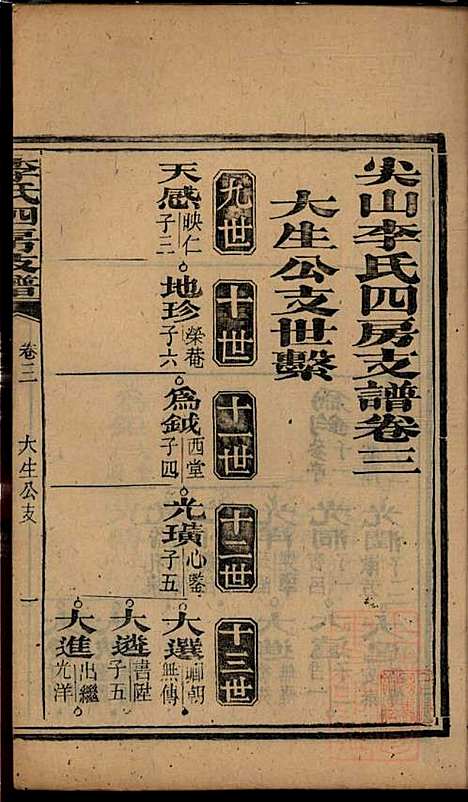 尖山李氏四房支譜卷三
大生公支世繫
九世
十世
十一世
十二世
十三世
天感 映仁 子三
地珍 榮菴 子六
爲鉞 西堂 子四
光璜 心鑒 子五
大選 卿朝 無傳
大遴 書陞 子五
大進 出繼 光洋
李氏四房支譜
卷三
大生公支
一